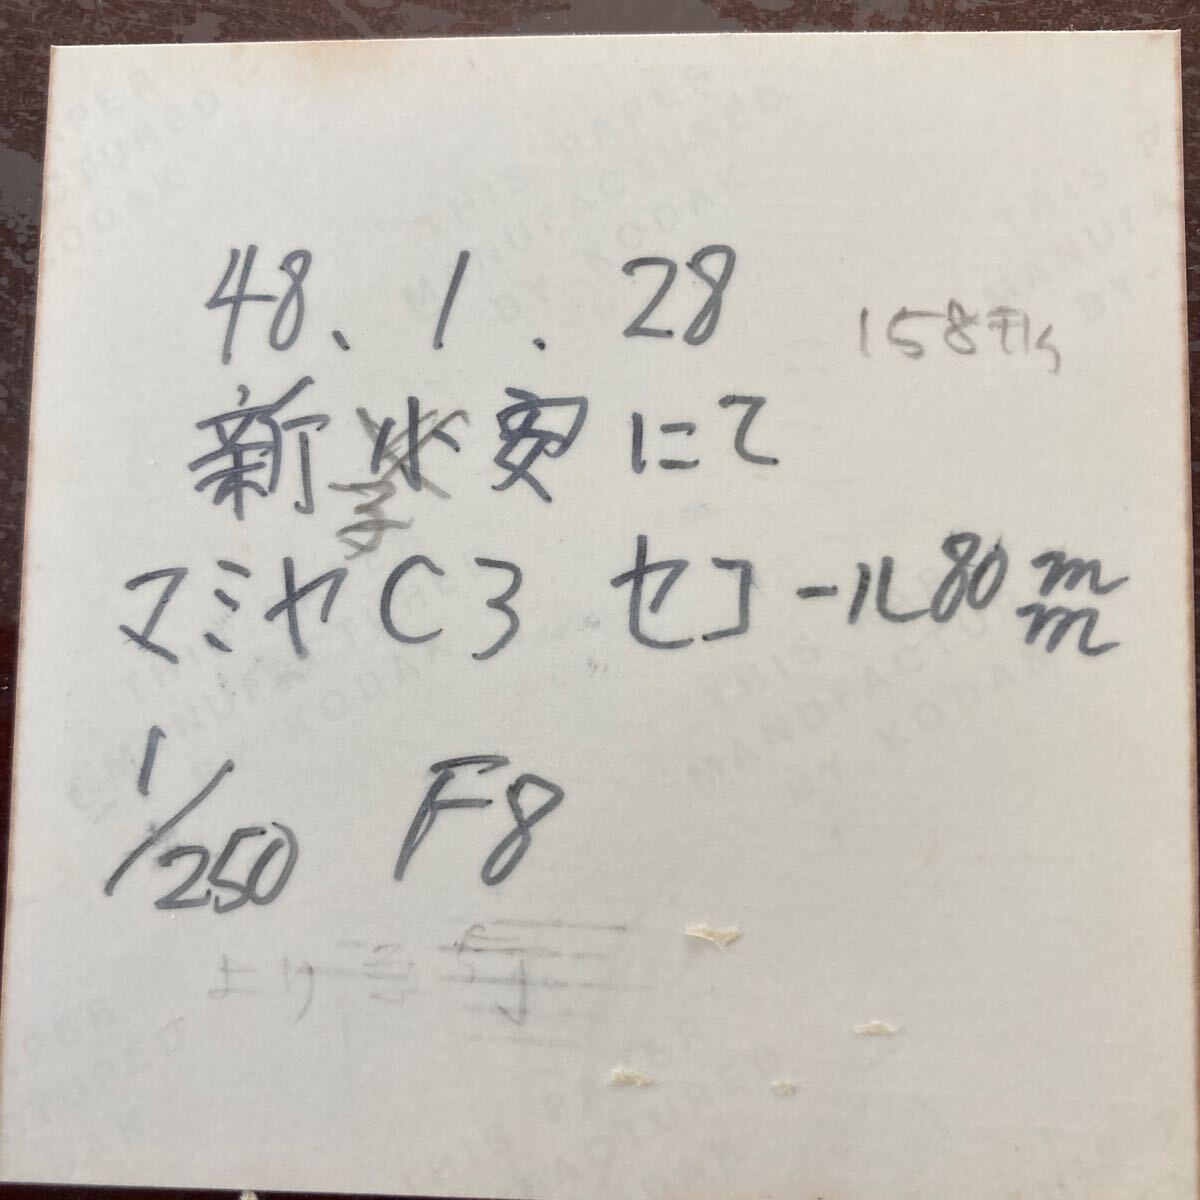 48、1.28
新小安にて
子
マミヤC3 セコール80mm
1/250 F8
THIS PAPER
MANUFACTURED
BY KODAK